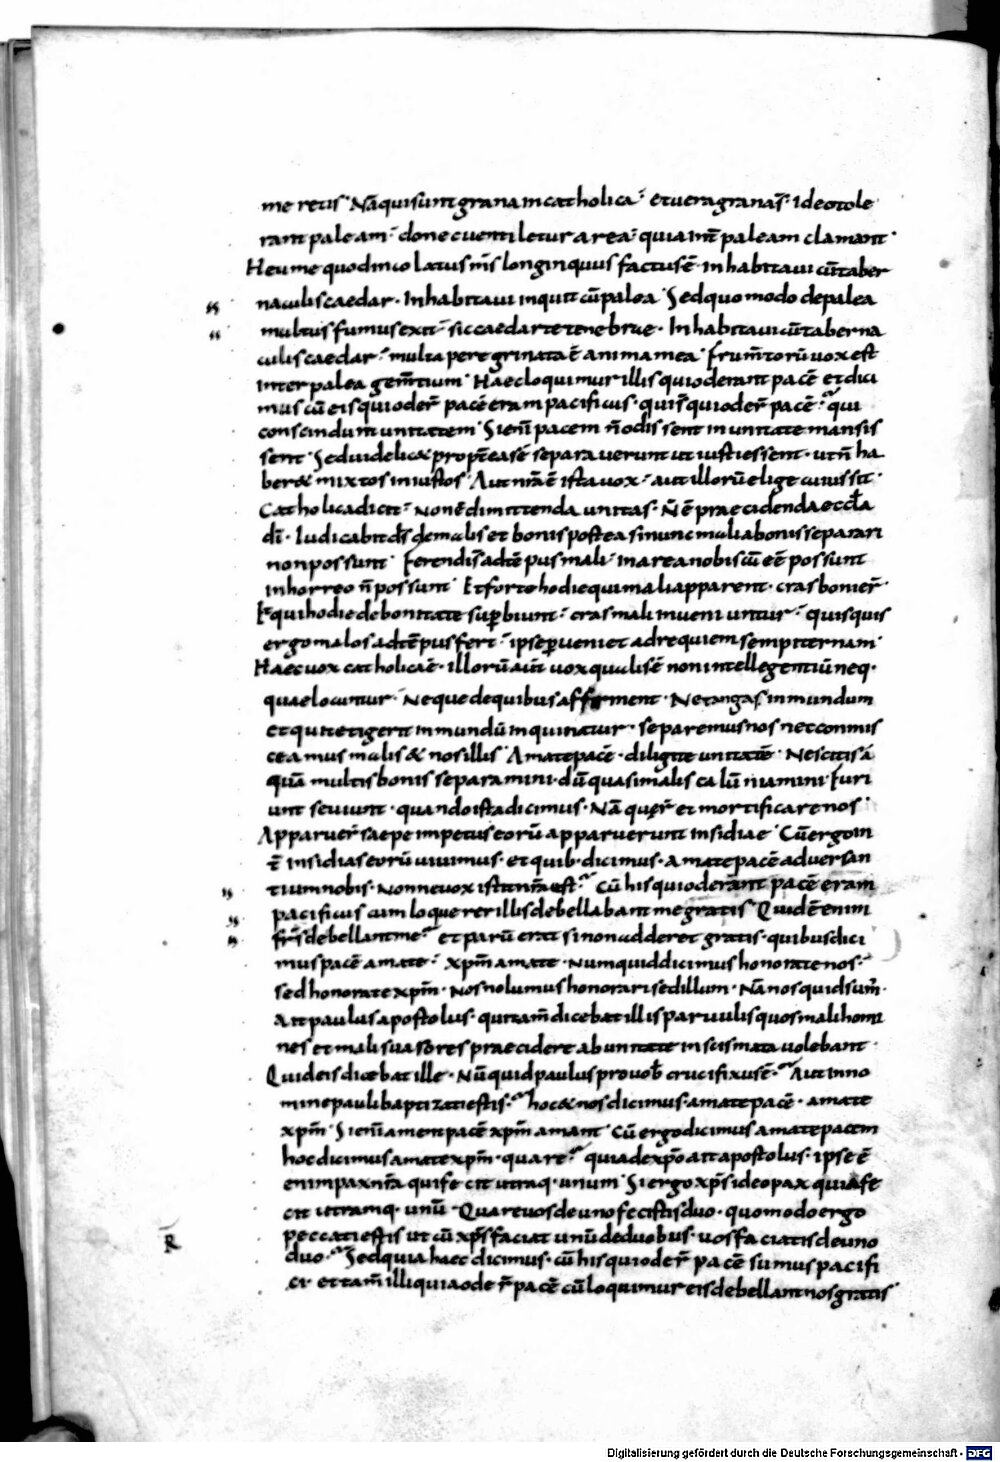 me retis · Nā qui sunt grana in catholica · et vera grana s̄ · ideo tole
rant paleam · donec ventiletur area · quia int̄ paleam clamant ·
Heu me quod incolatus m̄s longinquus factus ē · inhabitavi cū taber
naculis caedar · Inhabitavi inquit cū palea · Sed quomodo de palea
multus fumus exit · sic caedar te tenebrae · Inhabitavi cū taberna
culis caedar · multa peregrinata ē anima mea · frum̄torū vox est
inter palea gem̄tium · Haec loquimur illis qui oderant pacē et dici
mus cū eis qui oder̄ pacē eram pacificus · qui s̄ qui oder̄ pacē · qui
conscindunt unitatem · Si enī pacem n̄ odissent in unitate mansis
sent · Sed videlic& propt̄ea sē separaverunt ut iusti essent · ut n̄ ha
ber& mixtos iniustos · Aut nr̄a ē ista vox · aut illorū elige cuius sit ·
Catholica dicit · Non ē dimittenda unitas · N̄ ē praecidenda eccl̄a
dī · Iudicabit ds̄ de malis et bonis postea si nunc mali a bonis separari
non possunt · Ferendi s̄ ad tēpus mali · in area nobiscū eē possunt
in horreo n̄ possunt · Et forte hodie qui mali apparent · cras boni er̄ ·
Et qui hodie de bonitate sup̄biunt · cras mali inveniuntur · quisquis
ergo malos ad tēpus fert · ipse p̄veniet ad requiem sempiternam ·
Haec vox catholica ē · illorū aūt vox qualis ē non intellegentiū neq ·
quae locuntur · Neque de quibus afferment · Ne tangas inmundum
et qui tetigerit inmundū inquinatur · separemus nos ne conmis
ceamus malis & nos illis · Amate pacē · diligite unitatē · Nescitis a
quā multis bonis separamini · dū quasi malis calūniamini · Furi
unt seviunt · quando ista dicimus · Nā quer̄ et mortificare nos ·
Apparuer̄ saepe impetus eorū apparuerunt insidiae · Cū ergo in
t̄ insidias eorū vivimus · et quib · dicimus · amate pacē adversan
tium nobis · Nonne vox ista nr̄a est · cū his qui oderant pacē eram
pacificus cum loquerer illis debellabant me gratis · Quid ē enim
fr̄s debellant me · et parū erat si non adderet gratis · quibus dici
mus pacē amate · xp̄m amate · Numquid dicimus honorate nos ·
sed honorate xp̄m · Nos nolumus honorari sed illum · Nā nos quid sum̄ ·
Ait paulus apostolus · qui tam̄ dicebat illis parvulis quos mali homi
nes et mali suasores praecidere ab unitate in scismata volebant ·
Quid eis dicebat ille · Nūquid paulus pro vob̄ crucifixus ē · Aut in no
mine pauli baptizati estis · hoc & nos dicimus · amate pacē · amate
xp̄m · Si enī ament pacē xp̄m amant · Cū ergo dicimus amate pacem
hoc dicimus amate xp̄m · quare · quia de xp̄o ait apostolus · ipse ē
enim pax nr̄a qui fecit utraq · unum · Si ergo xp̄s ideo pax quia fe
cit utramq · unū · Quare vos de uno fecistis duo · quomodo ergo
peccati estis ut cū xp̄s faciat unū de duobus · vos faciatis de uno
duo · Sed quia haec dicimus · cū his qui oder̄ pacē sumus pacifi
ci · et tam̄ illi quia oder̄ pacē cū loquimur eis debellant nos gratis ·
R
Digitalisierung gefördert durch die Deutsche Forschungsgemeinschaft - DFG